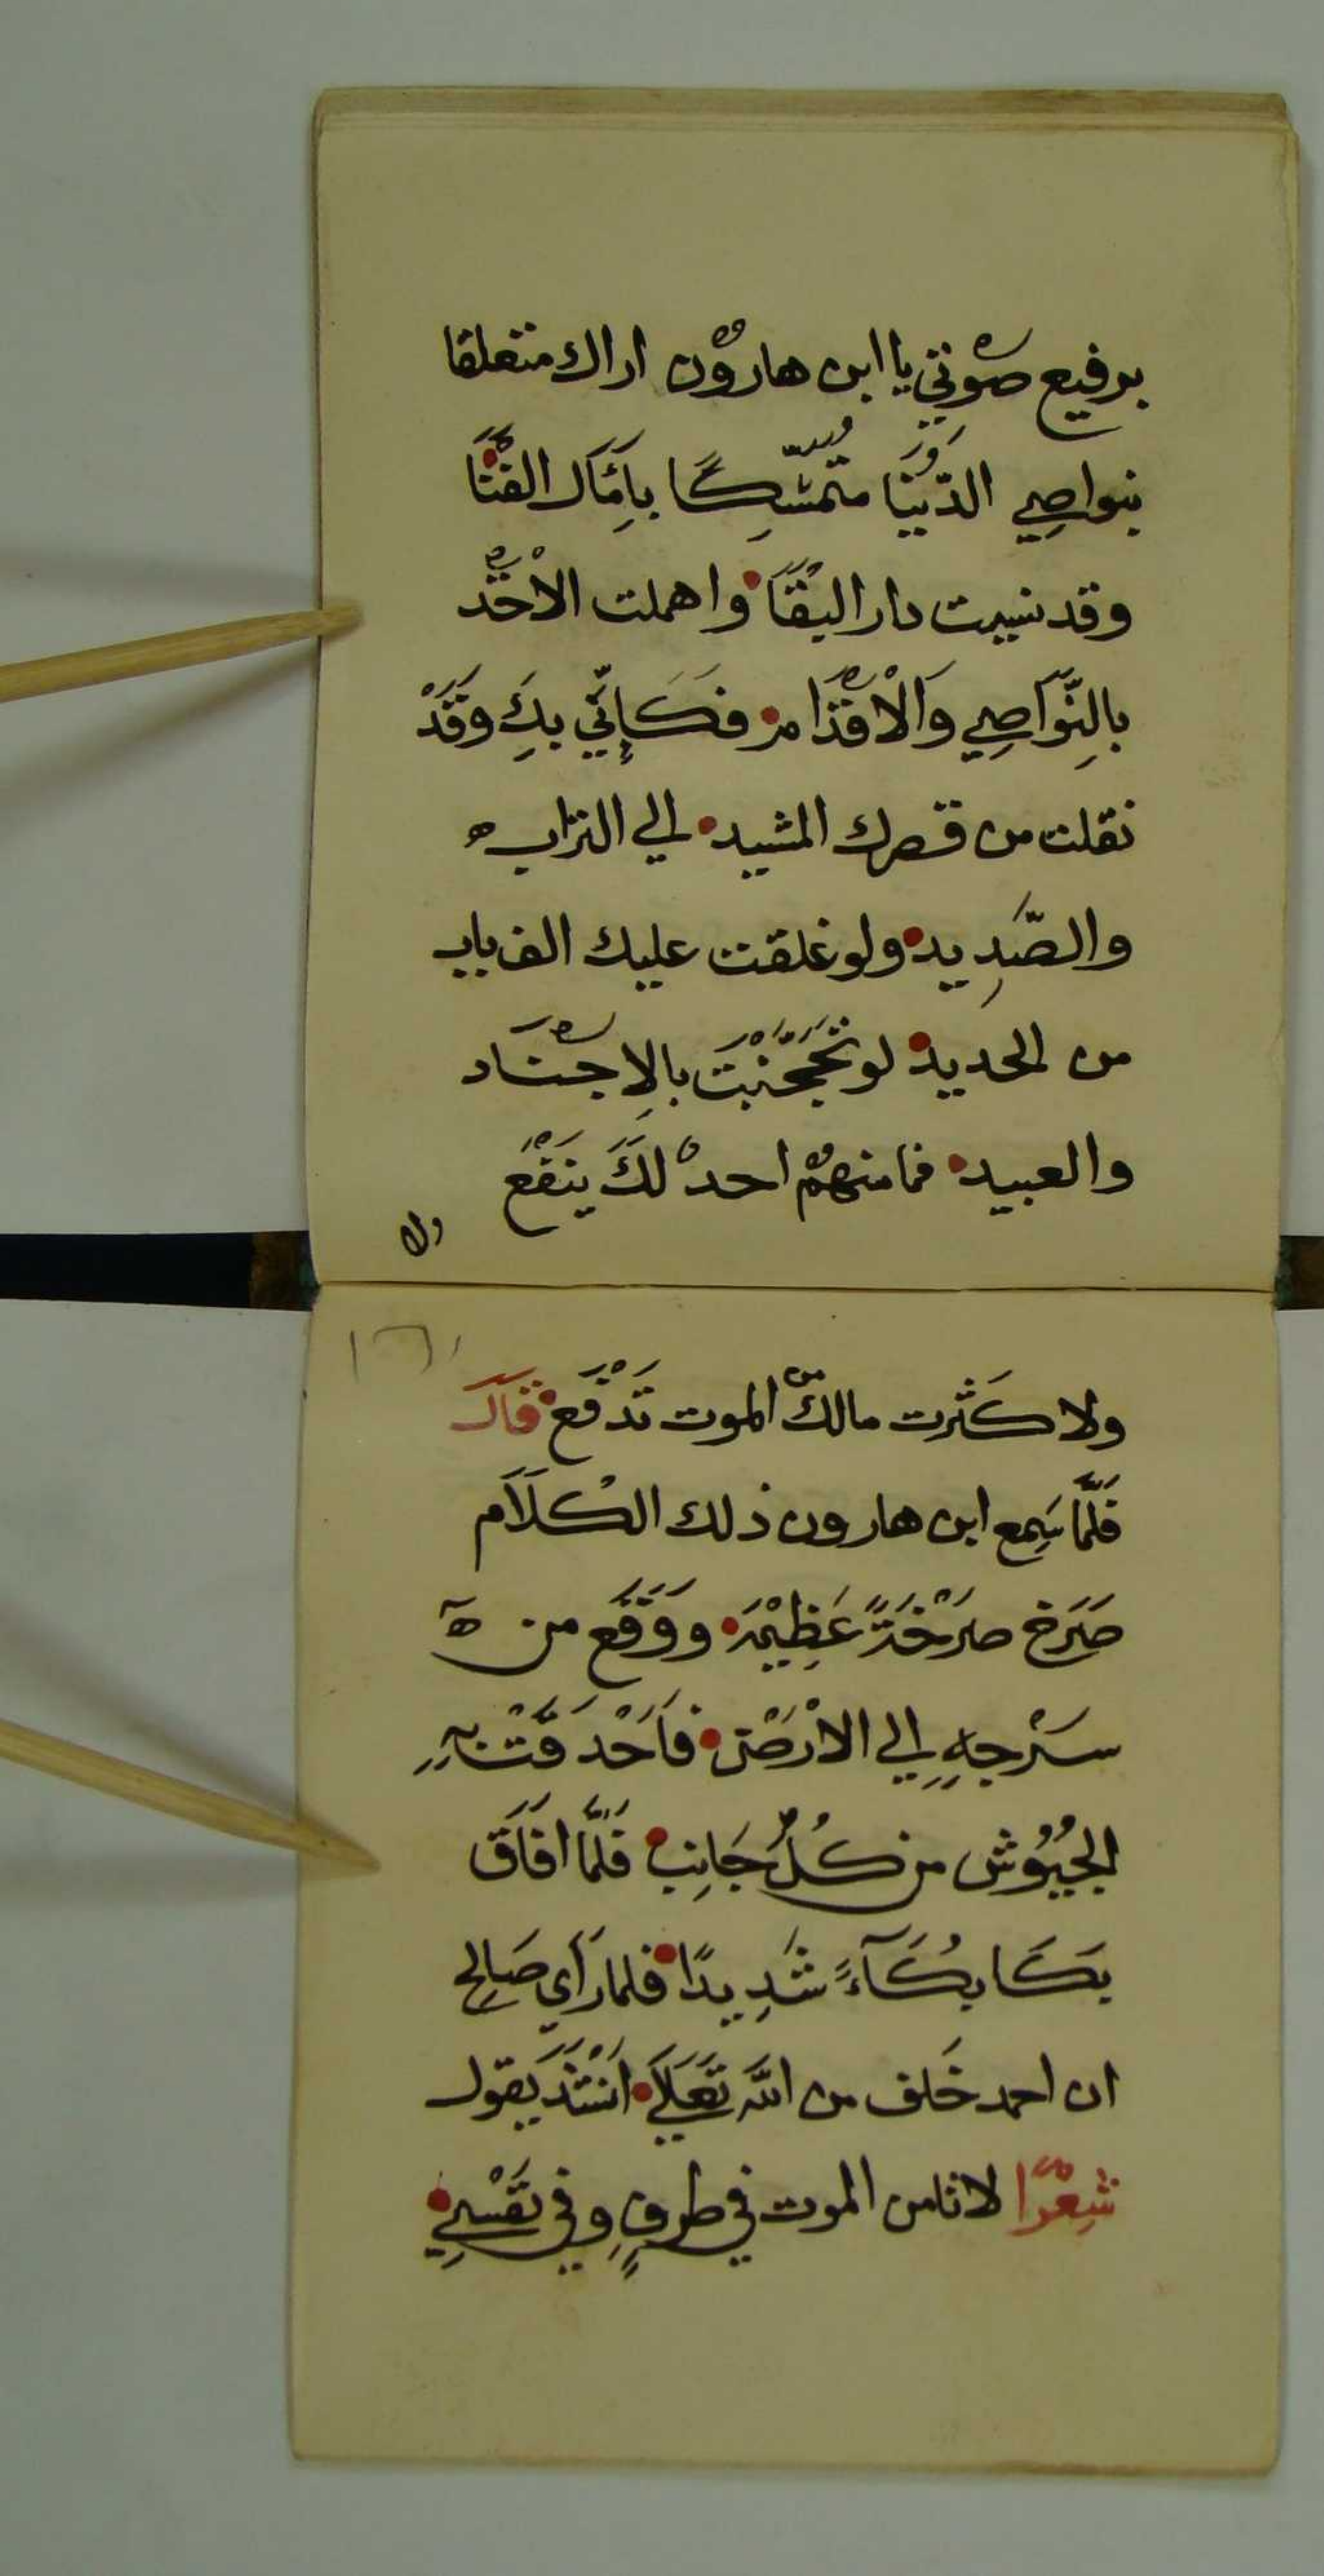 برفيع صوتي يا ابن هارون اراك متعلقا
بنواصي الدنيا متمسكا بامال الفنا
وقد نسيت دار البقا واهملت الاخذ
بالنواصي والاقدام فكاني بك وقد
نقلت من قصرك المشيد الي التراب ه
والصديد ولو غلقت عليك الف باب
من الحديد لو تحجبت بالاجناد
والعبيد فما منهم احد لك ينفع
ولا
١٦
ولا كثرت مالك الموت تدفع قال
فلما سمع ابن هارون ذلك الكلام
صرخ صرخة عظيمة ووقع من ه
سرجه الي الارض فاحدقت به
الجيوش من كل جانب فلما افاق
بكا بكاء شديدا فلما راي صالح
ان احمد خلف من الله تعلي انشد يقول
شعرا لا تامن الموت في طرف وفي نفسي